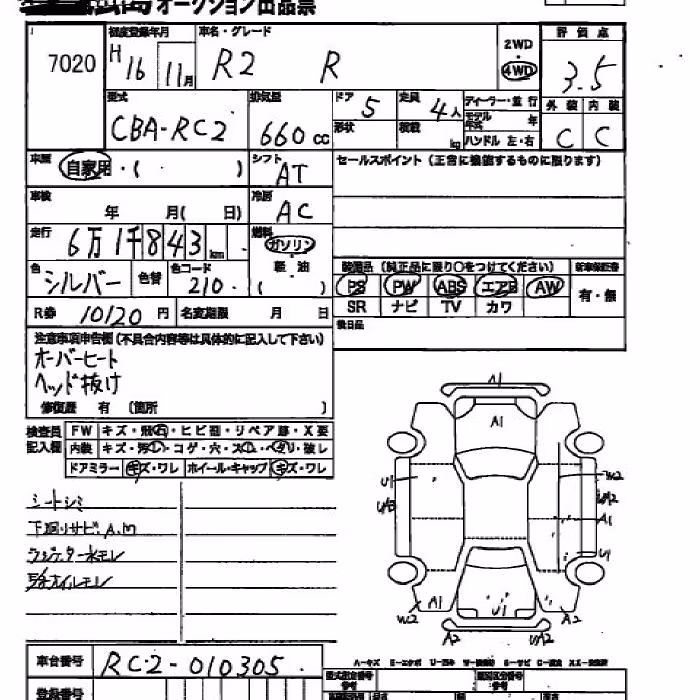 オークション出品票
7020
初度登録年月 車名・グレード 評価点
H16 11月 R2 R
2WD
4WD
3.5
型式 排気量 ドア 5 定員 4人 ディーラー・並行 外装 内装
CBA-RC2 660cc 形状 積載 kg モデル年式 年 C C
ハンドル 左・右
車歴 自家用・( ) シフト AT
セールスポイント(正常に機能するものに限ります)
車検 年 月( 日) 冷房 AC
走行 6万1千843km 燃料 ガソリン
軽・油
( )
色 シルバー 色替 色コード 210
装備品(純正品に限り○をつけてください) 新車保証書
PS PW ABS エアB AW 有・無
SR ナビ TV カワ
R券 10120円 名変期限 月 日
後日品
注意事項申告欄(不具合内容等は具体的に記入して下さい)
オーバーヒート
ヘッド抜け
修復歴 有 〔箇所 〕
検査員記入欄 FW キズ・飛石・ヒビ割・リペア跡・X要
内装 キズ・汚れ・コゲ・穴・スレ・ヘタリ・破レ
ドアミラー キズ・ワレ ホイール・キャップ キズ・ワレ
シートシミ
下廻りサビ.A.M
ラジエター水モレ
A1
A1
U1
W2
A1
U1
A1
U1
W2
A2
A2
車台番号 RC2-010305
登録番号